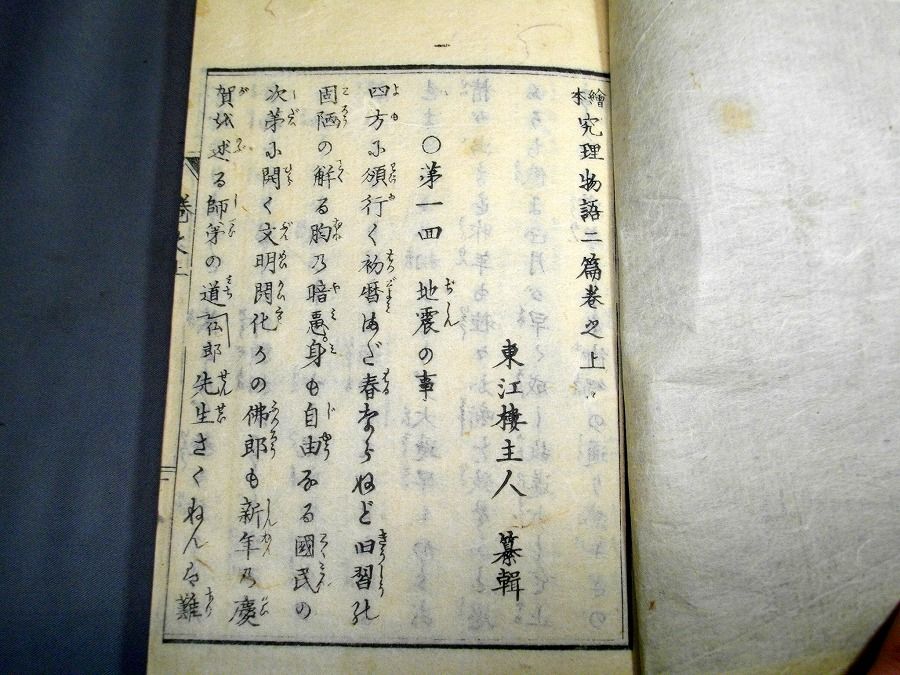 繪本 究理物語二篇卷之上
東江樓主人 纂輯
〇第一回 地震の事
四方に頒行く初暦まだ春ならねど旧習の
固陋の解る胸の暗愚身も自由なる國民の
次第に開く文明開化かの佛郎も新年の慶
賀を述る師弟の道 仏郎 先生さくねんは難